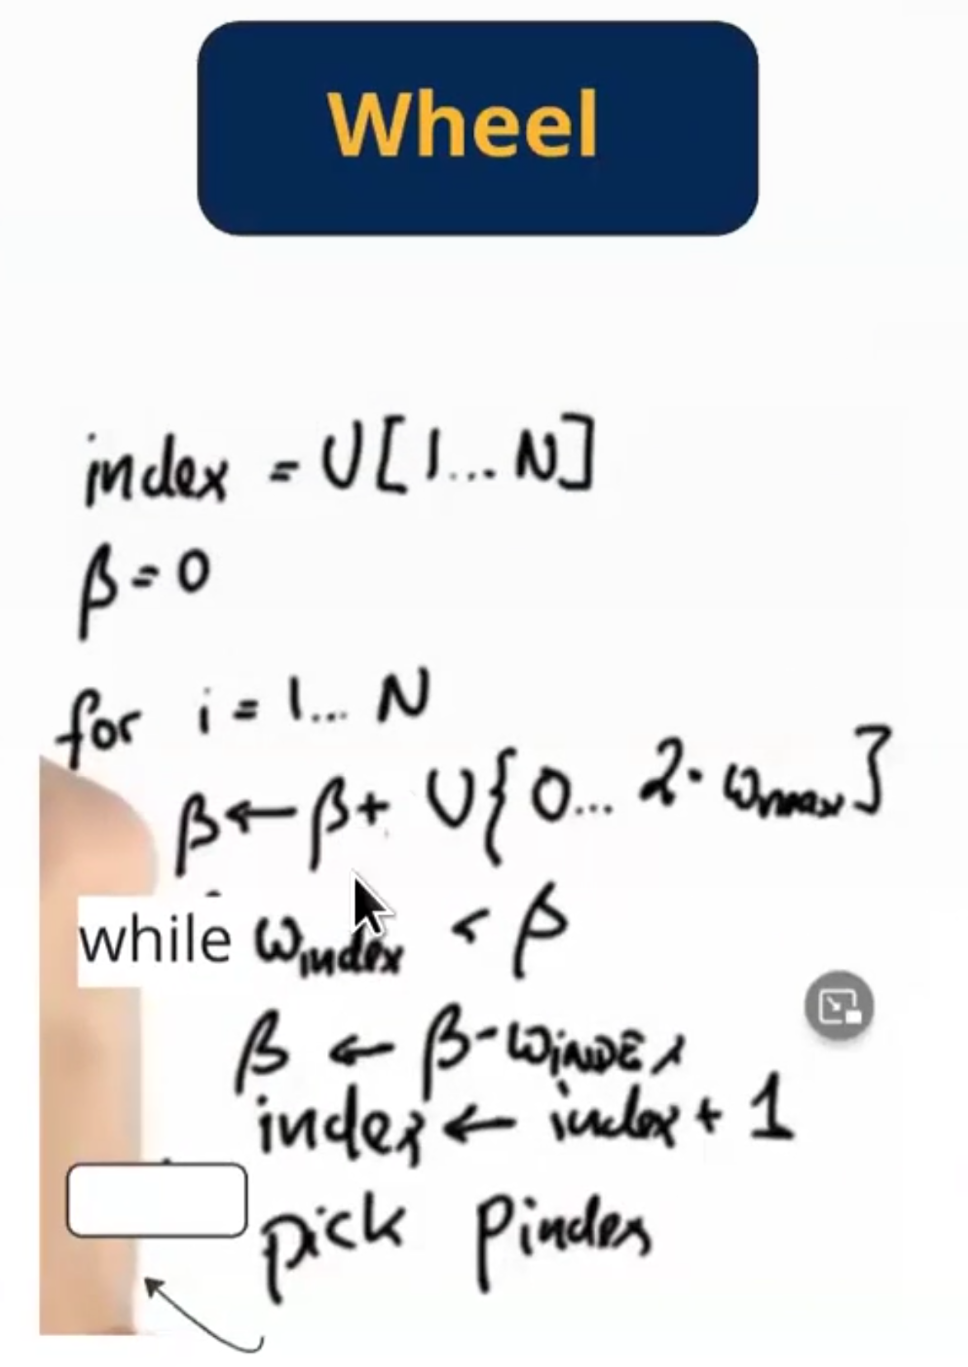 Wheel
index = U[1... N]
β = 0
for i = 1... N
β ← β + U{0... 2·ωmax}
while ωindex < β
β ← β - ωINDEX
index ← index + 1
pick Pindex